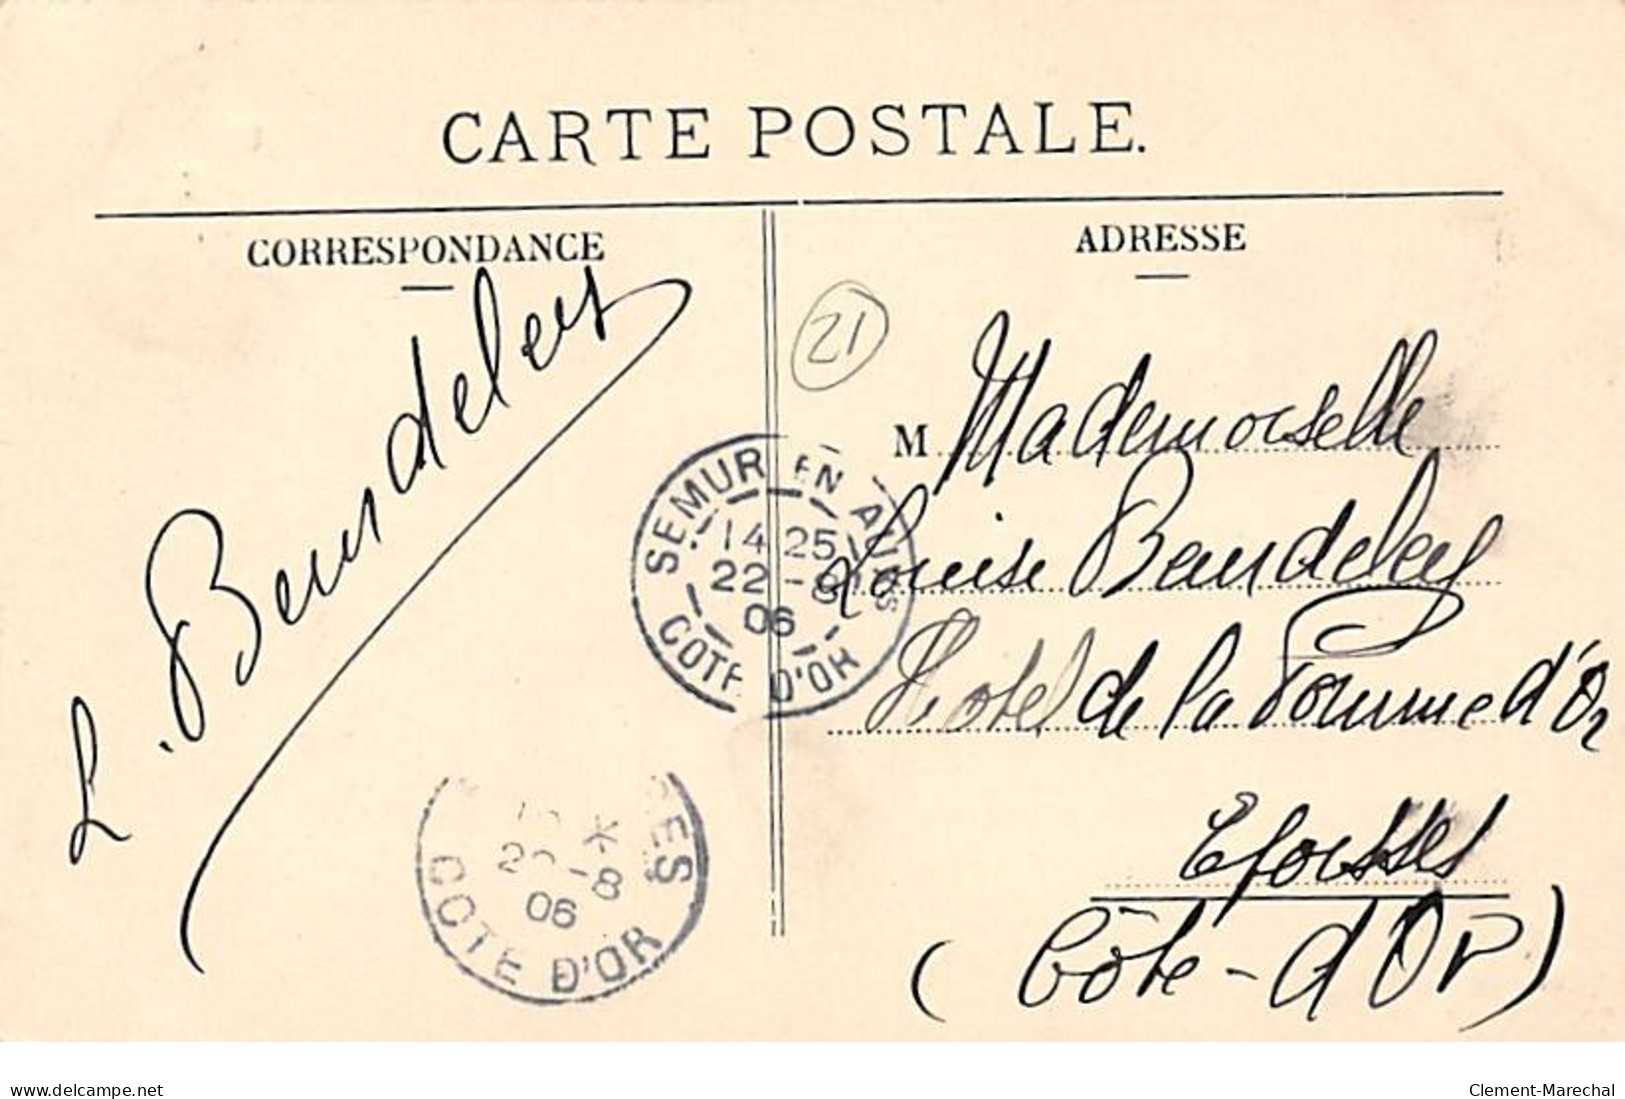 CARTE POSTALE.
CORRESPONDANCE
L. Beurdeley
ADRESSE
21
M Mademoiselle
Louise Beurdeley
Hotel de la Pomme d'Or
Epoisses
(Côte-d'Or)
SEMUR EN AUXOIS
14 25
22 - 8
06
COTE D'OR
-8
06
COTE D'OR
www.delcampe.net
Clement-Marechal